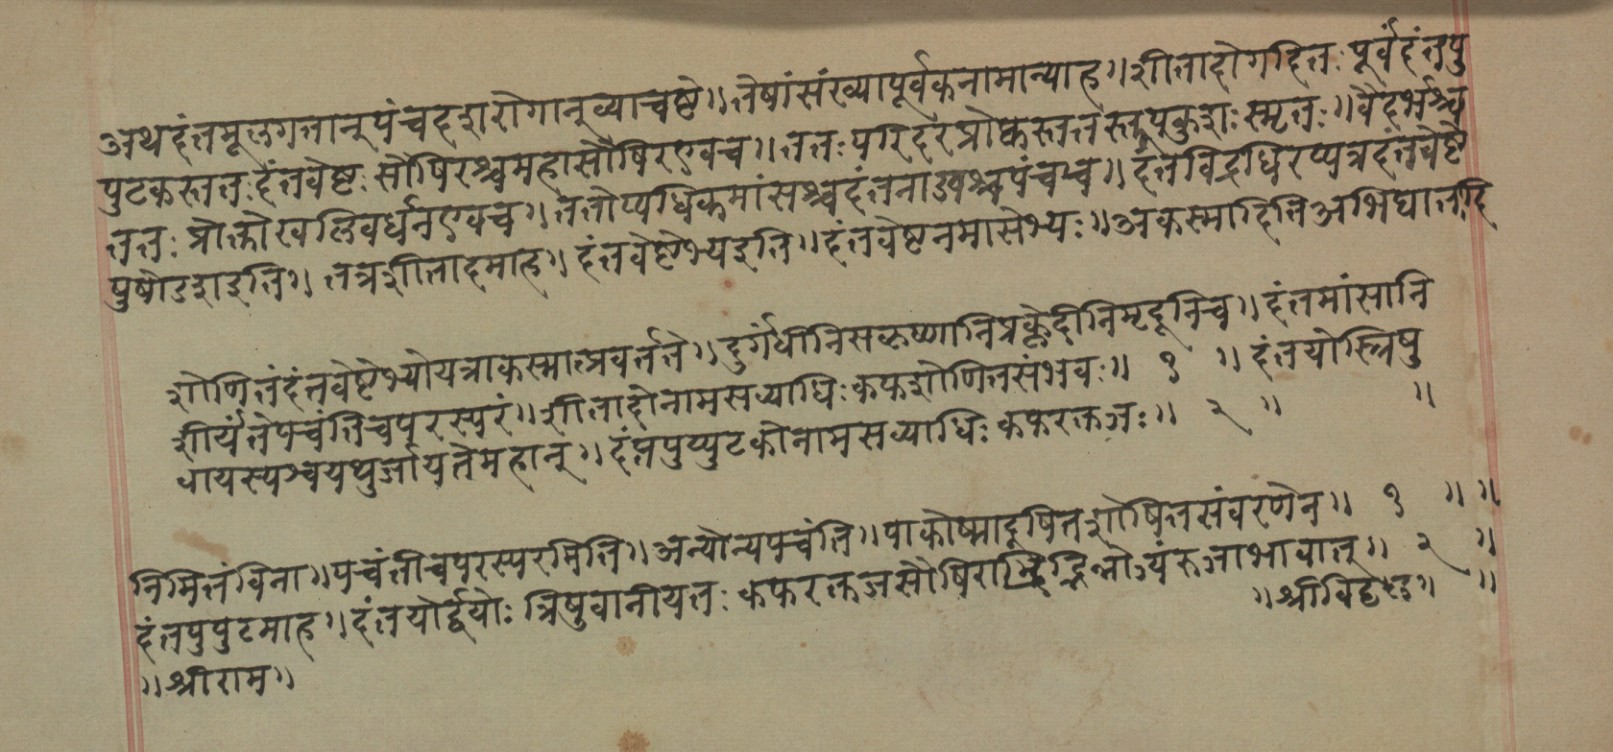 अथदंतमूलगतान्पंचदशरोगान्व्याचष्टे॥तेषांसंख्यापूर्वकनामान्याह॥शीतादोगदितःपूर्वंदंतपु
पुटकस्ततःदंतवेष्टःसौषिरश्चमहासौषिरएवच॥ततःपरिदरप्रोक्तस्ततस्तूपकुशःस्मृतः॥वैदर्भश्च
ततःप्रोक्तोखलिवर्धनएवच॥ततोप्यधिकमांसश्चदंतनाड्यश्चपंचच॥दंतविद्रधिरप्यत्रदंतवेष्टे
पुषोडशइति॥तत्रशीतादमाह॥दंतवेष्टेभ्यइति॥दंतवेष्टनमांसेभ्यः॥अकस्मादितिअभिघातादि
शोणितंदंतवेष्टेभ्योयत्राकस्मात्प्रवर्तते॥दुर्गंधीनिसकृष्णानिप्रक्लेदीनिमृदूनिच॥दंतमांसानि
शीर्यंतेपचंतिचपरस्परं॥शीतादोनामसव्याधिःकफशोणितसंभवः॥१॥दंतयोस्त्रिषु
वायस्यश्वयथुर्जायतेमहान्॥दंतपुप्पुटकोनामसव्याधिःकफरक्तजः॥२॥ ॥
निमितंविना॥पचंतीचपरस्परमिति॥अन्योन्यपचंति॥पाकोष्मादूषितशोषितसंवरणेन॥१॥॥
दंतपुपुटमाह॥दंतयोर्द्वयोःत्रिषुवानीयतःकफरक्तजसौषिराद्भिन्नोऽयंरुजाभावात्॥२॥
॥श्रीराम॥ ॥श्रीविठ्ठल॥ ॥